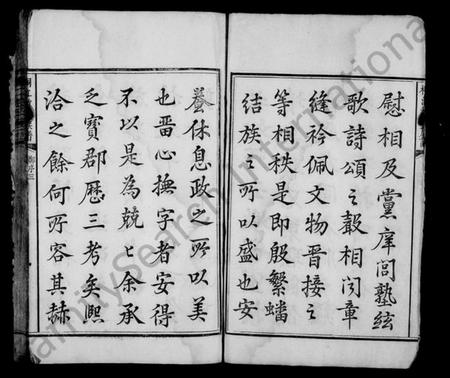 慰相及黨庠閭塾絃
歌詩頌之聲相聞章
縫衿佩文物晉接之
等相秩是即殷繁蟠
結族之所以盛也安
養休息政之所以美
也晋心撫字者安得
不以是為兢〻余承
乏寶郡歷三考矣熙
洽之餘何所容其赫
FamilySearch International